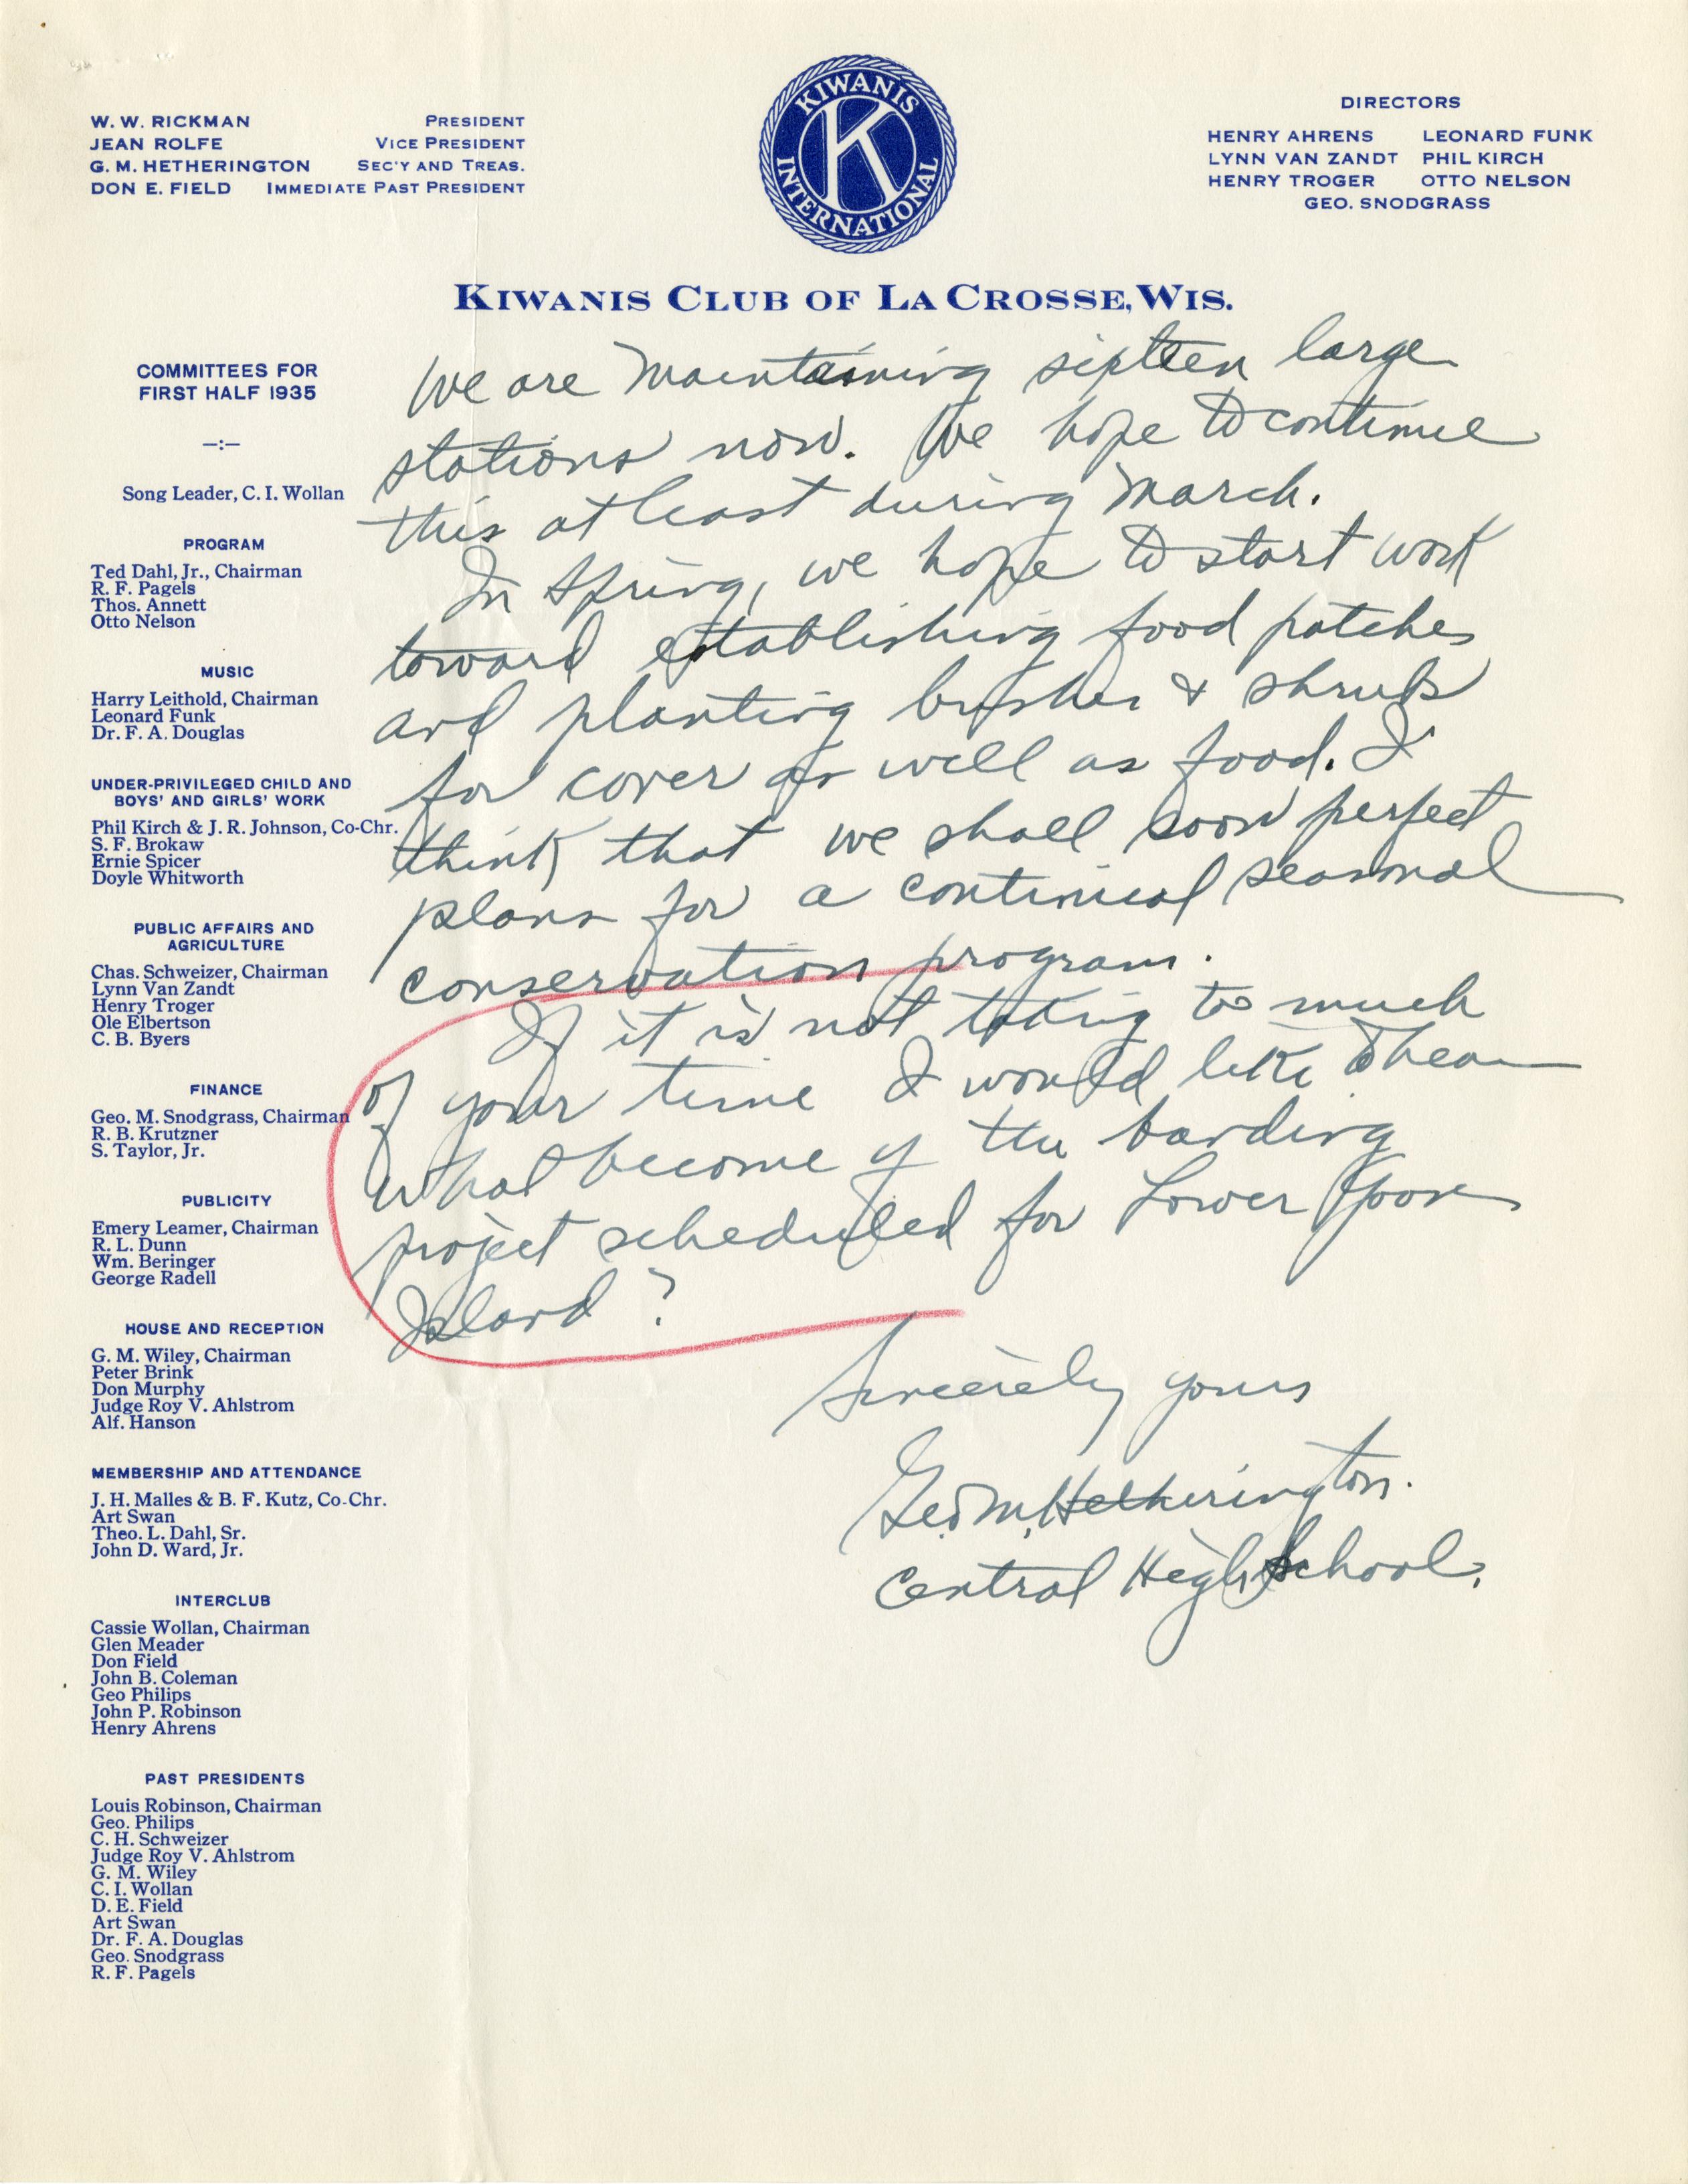 W. W. RICKMAN PRESIDENT
JEAN ROLFE VICE PRESIDENT
G. M. HETHERINGTON SEC'Y AND TREAS.
DON E. FIELD IMMEDIATE PAST PRESIDENT
KIWANIS
K
INTERNATIONAL
DIRECTORS
HENRY AHRENS LEONARD FUNK
LYNN VAN ZANDT PHIL KIRCH
HENRY TROGER OTTO NELSON
GEO. SNODGRASS
KIWANIS CLUB OF LA CROSSE, WIS.
COMMITTEES FOR
FIRST HALF 1935
—:—
Song Leader, C. I. Wollan
PROGRAM
Ted Dahl, Jr., Chairman
R. F. Pagels
Thos. Annett
Otto Nelson
MUSIC
Harry Leithold, Chairman
Leonard Funk
Dr. F. A. Douglas
UNDER-PRIVILEGED CHILD AND
BOYS' AND GIRLS' WORK
Phil Kirch & J. R. Johnson, Co-Chr.
S. F. Brokaw
Ernie Spicer
Doyle Whitworth
PUBLIC AFFAIRS AND
AGRICULTURE
Chas. Schweizer, Chairman
Lynn Van Zandt
Henry Troger
Ole Elbertson
C. B. Byers
FINANCE
Geo. M. Snodgrass, Chairman
R. B. Krutzner
S. Taylor, Jr.
PUBLICITY
Emery Leamer, Chairman
R. L. Dunn
Wm. Beringer
George Radell
HOUSE AND RECEPTION
G. M. Wiley, Chairman
Peter Brink
Don Murphy
Judge Roy V. Ahlstrom
Alf. Hanson
MEMBERSHIP AND ATTENDANCE
J. H. Malles & B. F. Kutz, Co-Chr.
Art Swan
Theo. L. Dahl, Sr.
John D. Ward, Jr.
INTERCLUB
Cassie Wollan, Chairman
Glen Meader
Don Field
John B. Coleman
Geo Philips
John P. Robinson
Henry Ahrens
PAST PRESIDENTS
Louis Robinson, Chairman
Geo. Philips
C. H. Schweizer
Judge Roy V. Ahlstrom
G. M. Wiley
C. I. Wollan
D. E. Field
Art Swan
Dr. F. A. Douglas
Geo. Snodgrass
R. F. Pagels
We are maintaining sixteen large
stations now. We hope to continue
this at least during March.
In Spring, we hope to start work
toward establishing food patches
and planting brushes & shrubs
for cover as well as food. I
think that we shall soon perfect
plans for a continual seasonal
conservation program.
If it is not taking to much
of your time I would like to hear
what become of the banding
project scheduled for Lower Goose
Island?
Sincerely yours
Geo. M. Hetherington.
Central High School.